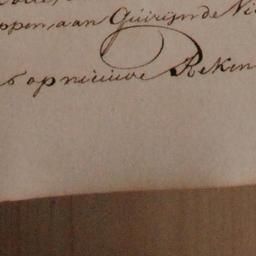 ppen, aan Guirijn de Ni
op nieuwe Reken